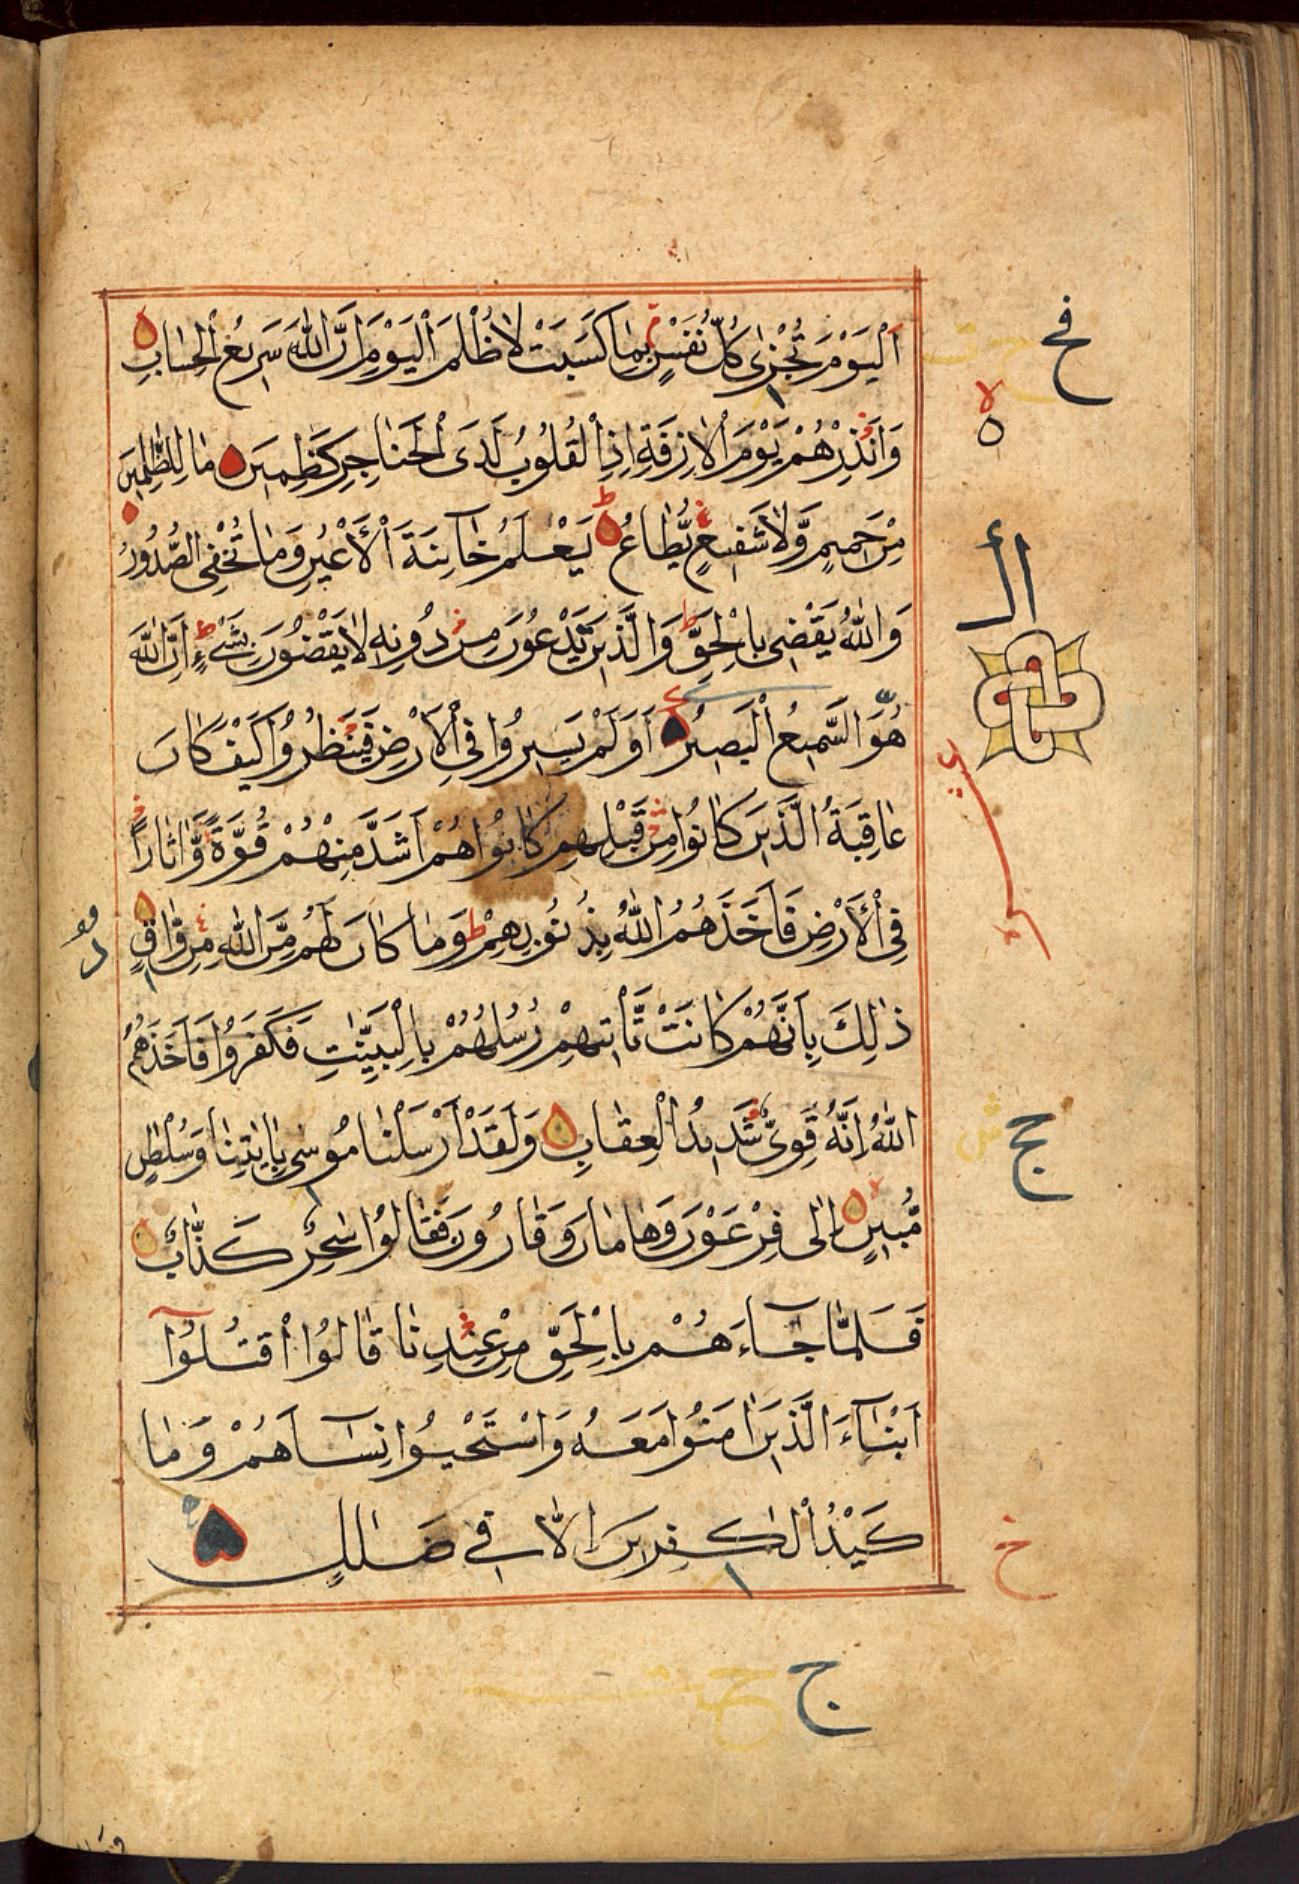 اَلْيَوْمَ تُجْزٰى كُلُّ نَفْسٍ بِمَا كَسَبَتْ لَا ظُلْمَ الْيَوْمَ اِنَّ اللّٰهَ سَرِيْعُ الْحِسَابِ
وَاَنْذِرْهُمْ يَوْمَ الْاٰزِفَةِ اِذِ الْقُلُوْبُ لَدَى الْحَنَاجِرِ كٰظِمِيْنَ مَا لِلظّٰلِمِيْنَ
مِنْ حَمِيْمٍ وَّلَا شَفِيْعٍ يُّطَاعُ يَعْلَمُ خَآئِنَةَ الْاَعْيُنِ وَمَا تُخْفِى الصُّدُوْرُ
وَاللّٰهُ يَقْضِىْ بِالْحَقِّ وَالَّذِيْنَ يَدْعُوْنَ مِنْ دُوْنِهٖ لَا يَقْضُوْنَ بِشَىْءٍ اِنَّ اللّٰهَ
هُوَ السَّمِيْعُ الْبَصِيْرُ اَوَلَمْ يَسِيْرُوْا فِى الْاَرْضِ فَيَنْظُرُوْا كَيْفَ كَانَ
عَاقِبَةُ الَّذِيْنَ كَانُوْا مِنْ قَبْلِهِمْ كَانُوْا هُمْ اَشَدَّ مِنْهُمْ قُوَّةً وَّاٰثَارًا
فِى الْاَرْضِ فَاَخَذَهُمُ اللّٰهُ بِذُنُوْبِهِمْ وَمَا كَانَ لَهُمْ مِّنَ اللّٰهِ مِنْ وَّاقٍ
ذٰلِكَ بِاَنَّهُمْ كَانَتْ تَّاْتِيْهِمْ رُسُلُهُمْ بِالْبَيِّنٰتِ فَكَفَرُوْا فَاَخَذَهُمُ
اللّٰهُ اِنَّهٗ قَوِىٌّ شَدِيْدُ الْعِقَابِ وَلَقَدْ اَرْسَلْنَا مُوْسٰى بِاٰيٰتِنَا وَسُلْطٰنٍ
مُّبِيْنٍ اِلٰى فِرْعَوْنَ وَهَامَانَ وَقَارُوْنَ فَقَالُوْا سٰحِرٌ كَذَّابٌ
فَلَمَّا جَآءَهُمْ بِالْحَقِّ مِنْ عِنْدِنَا قَالُوا اقْتُلُوْٓا
اَبْنَآءَ الَّذِيْنَ اٰمَنُوْا مَعَهٗ وَاسْتَحْيُوْا نِسَآءَهُمْ وَمَا
كَيْدُ الْكٰفِرِيْنَ اِلَّا فِيْ ضَلٰلٍ